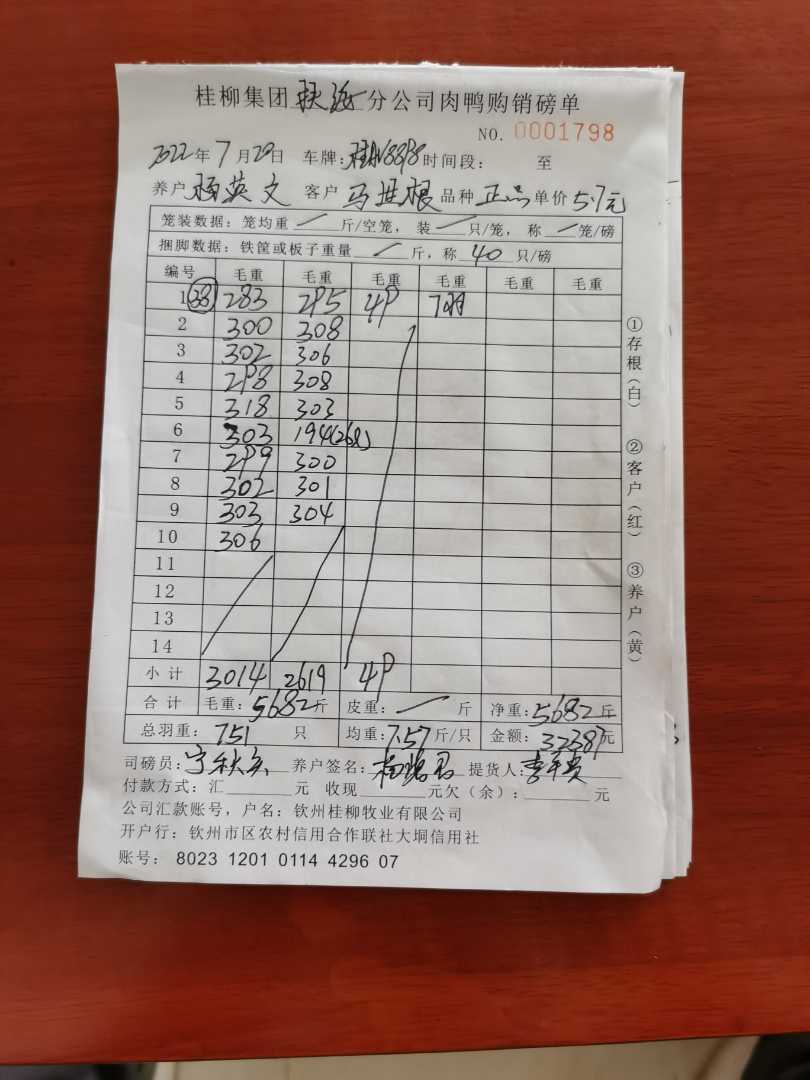 桂柳集团 钦海 分公司肉鸭购销磅单
NO. 0001798
2022年7月29日 车牌: 时间段: 至
养户 杨英文 客户 马进根 品种 正品 单价 5.7元
笼装数据: 笼均重 / 斤/空笼, 装 / 只/笼, 称 / 笼/磅
捆脚数据: 铁筐或板子重量 / 斤, 称 40 只/磅
编号 毛重 毛重 毛重 毛重 毛重 毛重
1 (38) 283 295 49 7羽
2 300 308
3 302 306
4 298 308
5 318 303
6 303 194(26只)
7 299 300
8 302 301
9 303 304
10 306
11
12
13
14
小计 3014 2619 49
合计 毛重: 5682斤 皮重: / 斤 净重: 5682斤
总羽重: 751 只 均重: 7.57斤/只 金额: 32387元
司磅员: 养户签名: 提货人:
付款方式: 汇 元 收现 元欠(余): 元
公司汇款账号, 户名: 钦州桂柳牧业有限公司
开户行: 钦州市区农村信用合作联社大垌信用社
账号: 8023 1201 0114 4296 07
①存根(白) ②客户(红) ③养户(黄)